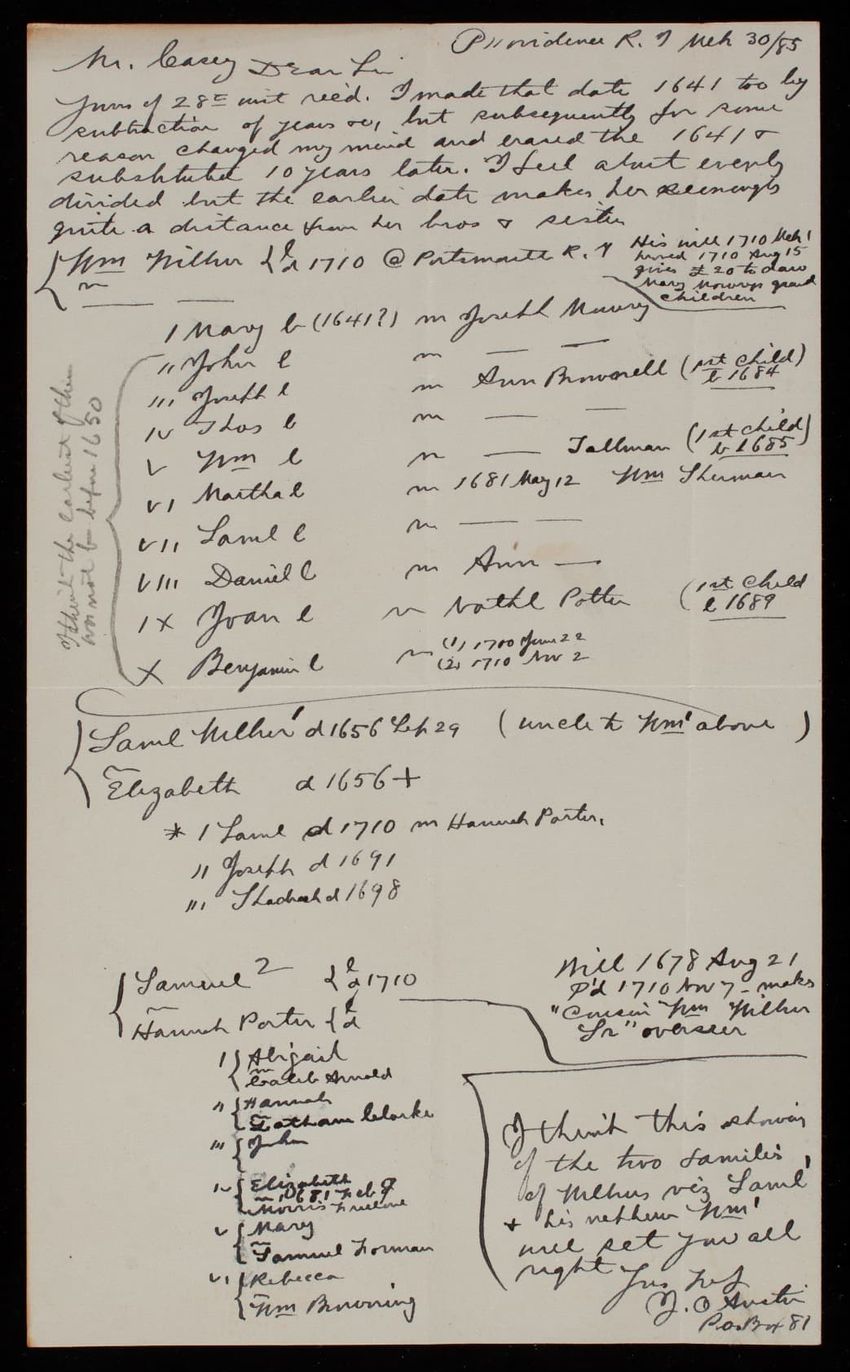 Providence R. I Mch 30/85
Mr. Casey Dear Sir
Yours of 28th inst rec'd. I made that date 1641 too by
subtraction of years &c, but subsequently for some
reason changed my mind and erased the 1641 &
substituted 10 years later. I feel about evenly
divided but the earlier date makes her seemingly
quite a distance from her bros & sister
Wm Wilbur { b d 1710 @ Portsmouth R. I
m — —
His will 1710 Mch 1
proved 1710 Aug 15
gives £ 20 to dau
Mary Mowrys grand
children
I Mary b (1641?) m Joseph Mowry
II John b m — —
III Joseph b m Ann Brownell (1st child) b 1684
IV Thos b m — —
V Wm b m — Tallman (1st child) b 1685
VI Martha b m 1681 May 12 Wm Sherman
VII Saml b m — —
VIII Daniel b m Ann —
IX Joan b m Nathl Potter (1st Child b 1689
X Benjamin b m (1) 1700 June 22
(2) 1710 Nov 2
I think the earliest of them
was not b— before 1650
Saml Wilbur1 d 1656 Sep 29 (uncle to Wm1 above)
m
Elizabeth d 1656+
* I Saml d 1710 m Hannah Porter,
II Joseph d 1691
III Shadrach d 1698
Samuel 2 { b d 1710
m
Hannah Porter { b d
Will 1678 Aug 21
P'd 1710 Nov 7 - makes
"Cousin Wm Wilbur
Sr" overseer
I { Abigail
m
Caleb Arnold
II { Hannah
m
Latham Clarke
III { John
IV { Elizabeth
m 1681 Feb 9
Morris Freelove
V { Mary
m
Samuel Forman
VI { Rebecca
m
Wm Browning
I think this showing
of the two families,
of Wilburs viz Saml1
& his nephew Wm1
will set you all
right Yrs Trly
J. O Austin
P.O Box 81